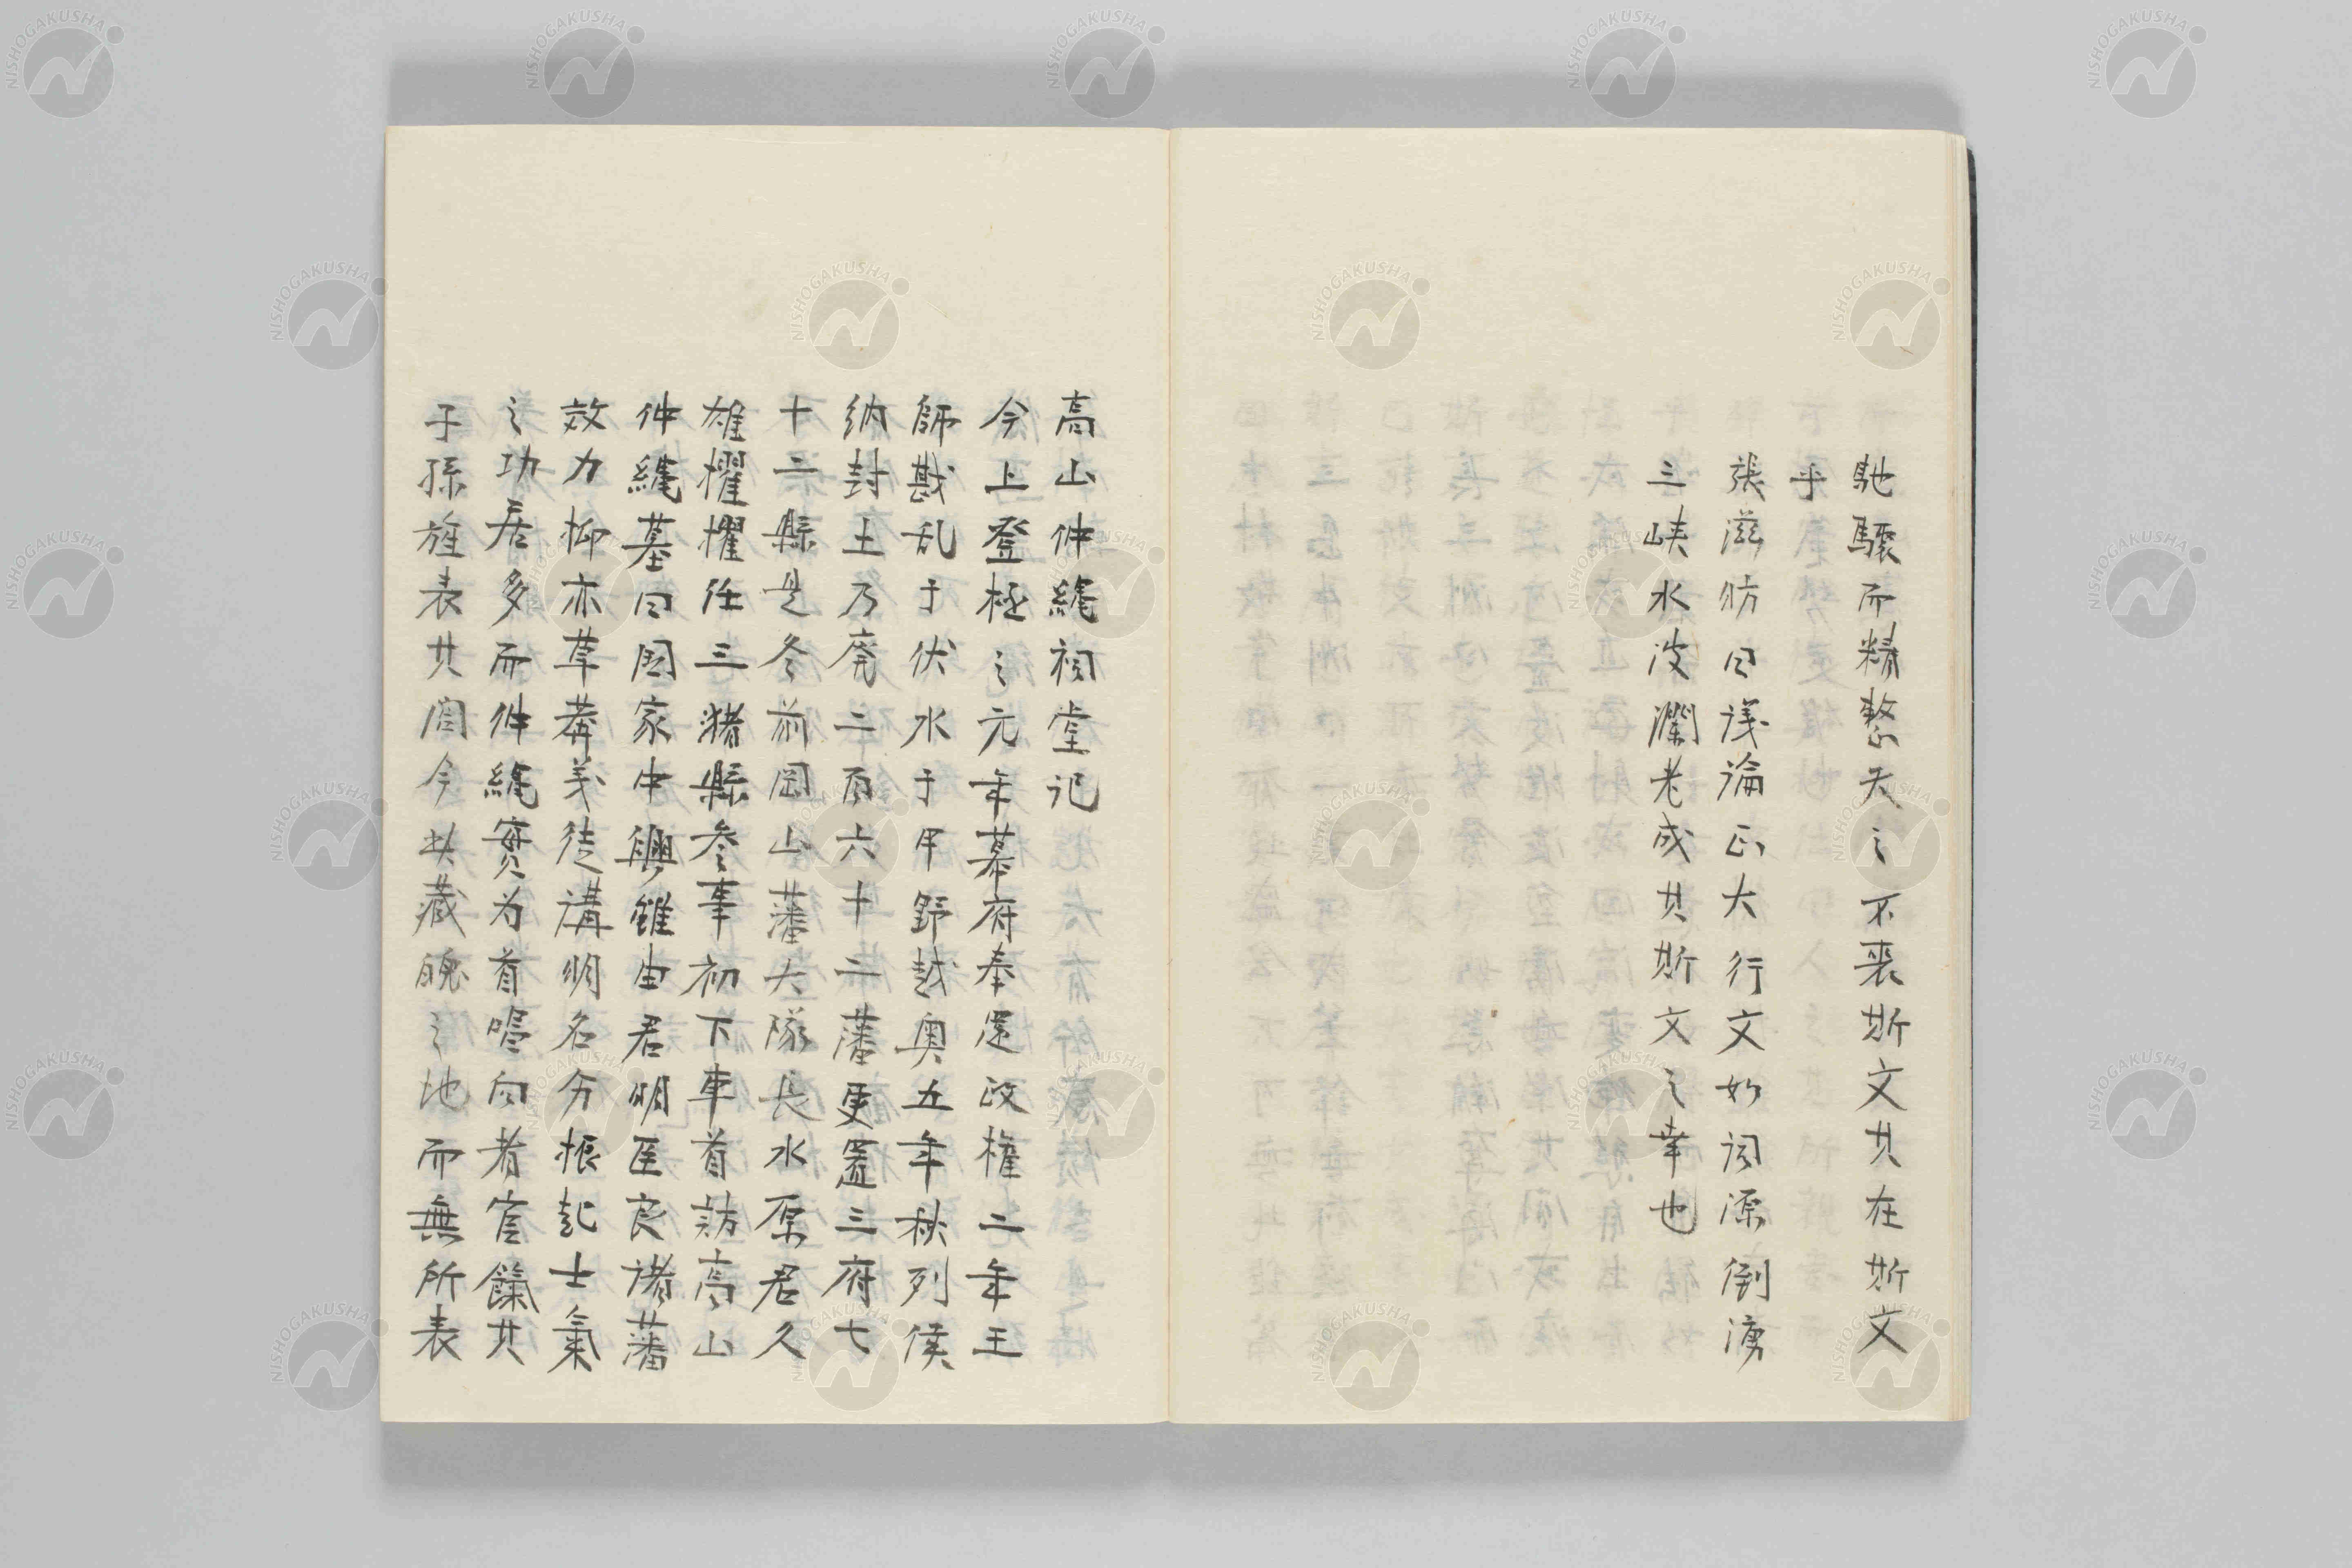 馳驟而精整天之不喪斯文其在斯文
乎
張滋昉曰議論正大行文如詞源倒湧
三峡水波瀾老成其斯文之幸也
高山仲縄祠堂記
今上登極之元年幕府奉還政權二年王
師戡乱于伏水于甲野越奥五年秋列侯
納封土乃廃二百六十二藩更置三府七
十二縣是冬前岡山藩大隊長水原君久
雄擢擢任三瀦縣参事初下車首訪高山
仲縄墓曰国家中興雖由君明臣良諸藩
效力抑亦草莽義徒講明名分振起士氣
之功居多而仲縄實为首唱向者官餼其
子孫旌表其閭今此藏魄之地而無所表
NISHOGAKUSHA